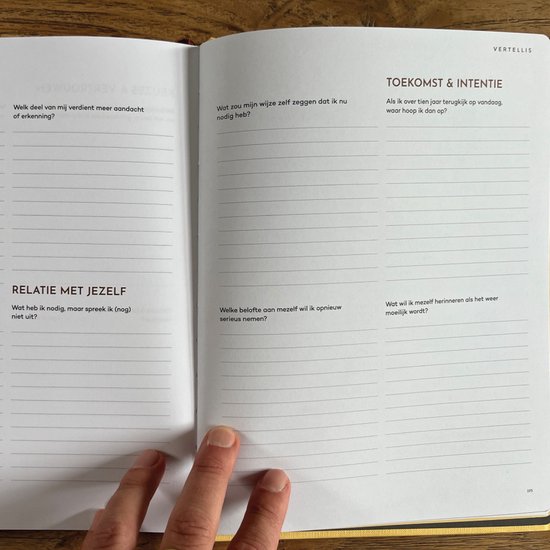 Welk deel van mij verdient meer aandacht
of erkenning?
RELATIE MET JEZELF
Wat heb ik nodig, maar spreek ik (nog)
niet uit?
VERTELLIS
Wat zou mijn wijze zelf zeggen dat ik nu
nodig heb?
Welke belofte aan mezelf wil ik opnieuw
serieus nemen?
TOEKOMST & INTENTIE
Als ik over tien jaar terugkijk op vandaag,
waar hoop ik dan op?
Wat wil ik mezelf herinneren als het weer
moeilijk wordt?